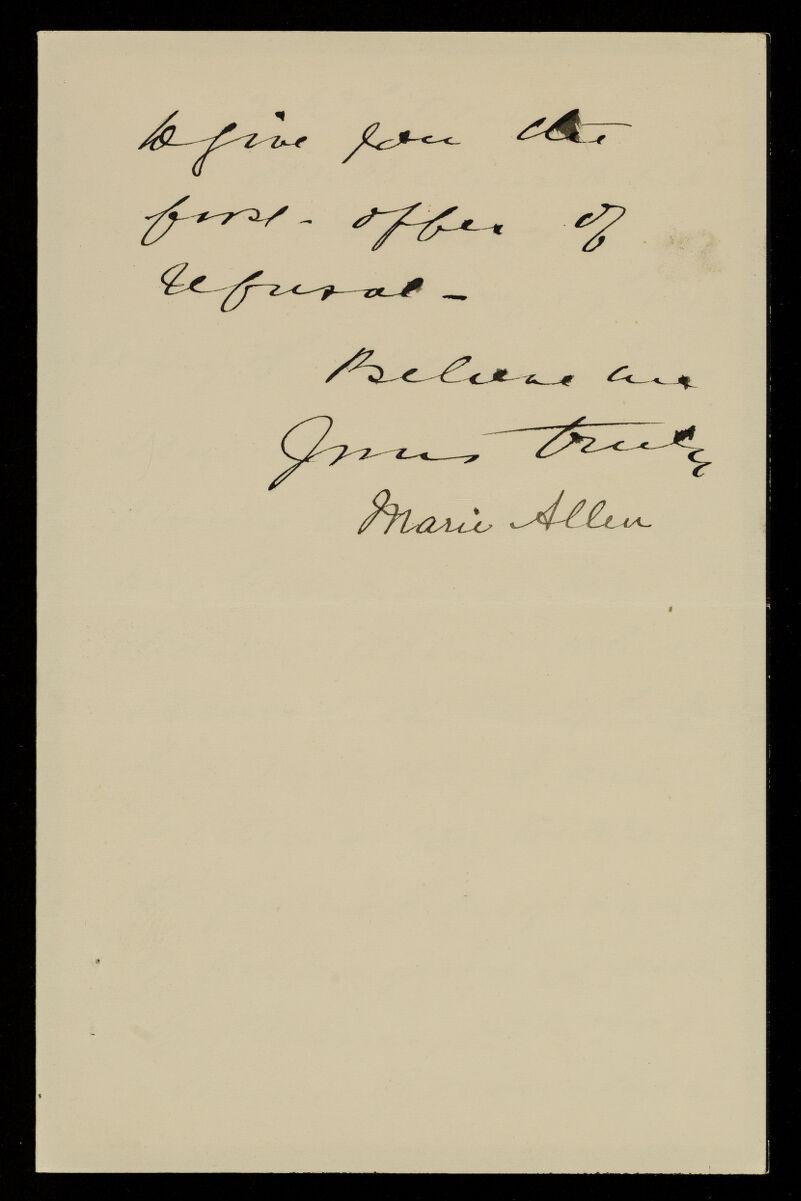 to give you the
first - offer of
refusal -
Believe me
Yours truly
Marie Allen